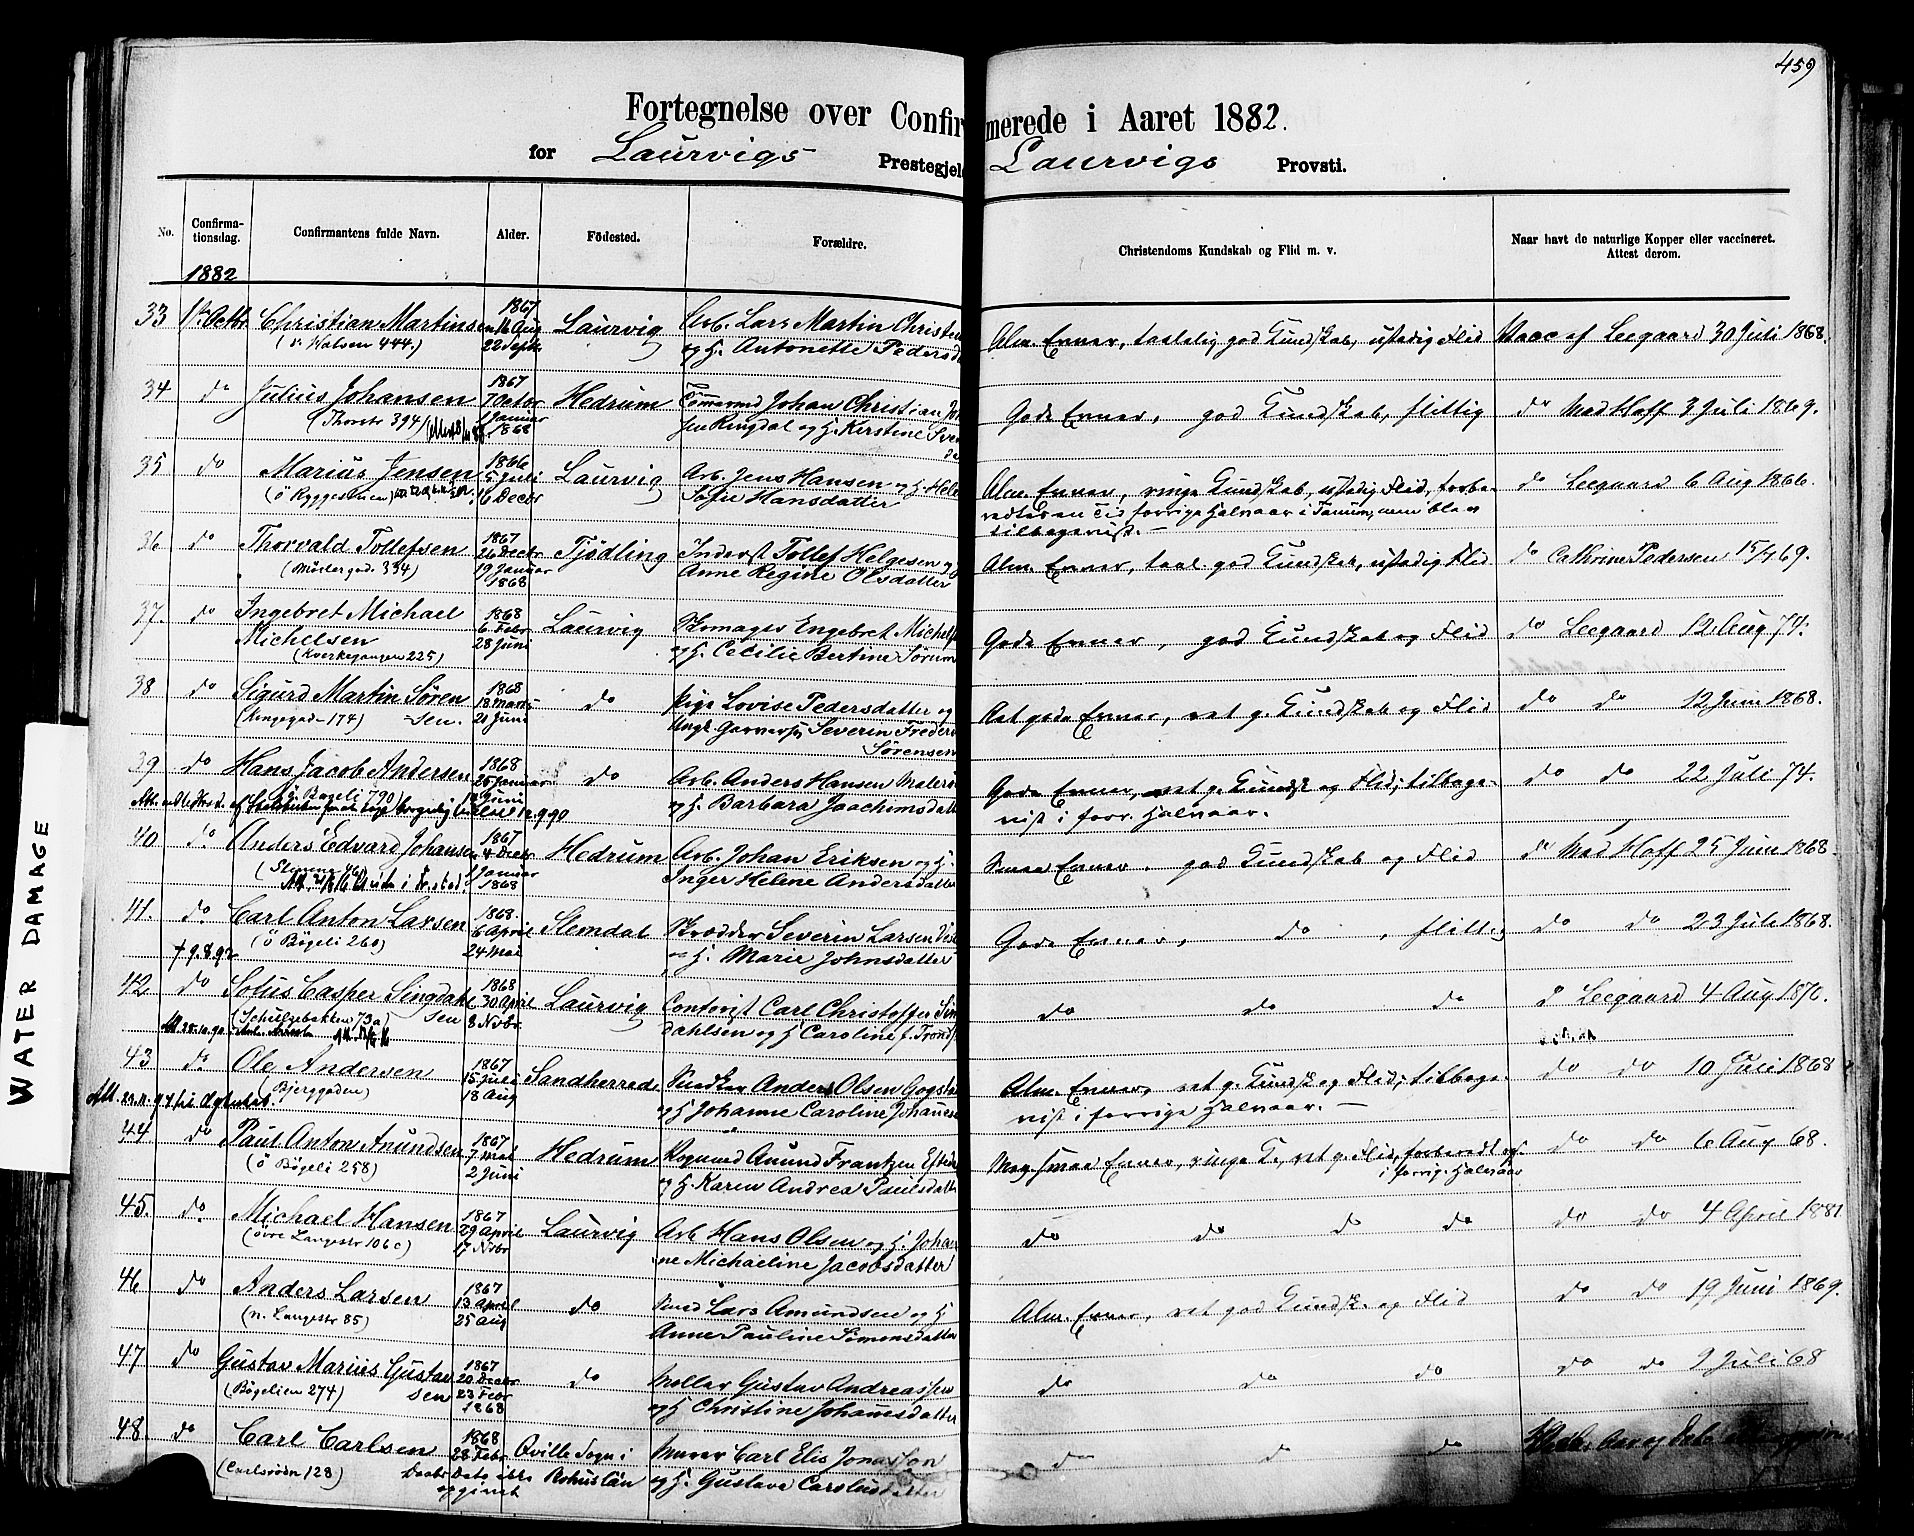 459
Fortegnelse over Confirmerede i Aaret 1882.
for Laurvigs Prestegjeld Laurvigs Provsti.
No. Confirmationsdag. Confirmantens fulde Navn. Alder. Födested. Forældre. Christendoms Kundskab og Flid m. v. Naar havt de naturlige Kopper eller vaccineret. Attest derom.
1882
33 1ste Octbr Christian Martinsen 1867 16 Aug 22 Septr Laurvig Arb. Lars Martin Christen
og H. Antonette Pedersd
Alm. Evner, taalelig god Kundskab, ustadig Flid Vacc af Leegaard 30 Juli 1868.
34 do Julius Johansen 1867 7 Octbr 1 Januar 1868 Hedrum Tömmermd Johan Christian Joh
(Thorstr 394)
sen Ringdal og H. Kirstine Sven
Gode Evner, god Kundskab, flittig do Mad Hoff 3 Juli 1869.
35 do Marius Jensen 1866 5 Juli 16 Decbr Laurvig Arb. Jens Hansen og H. Hele
Sofie Hansdatter
Alm. Evner, ringe Kundskab, ustadig Flid, forbe-
redtes en Tid forrige Halvaar i Tanum, men blev
tilbagevist. —
do Leegaard 6 Aug 1866.
36 do Thorvald Tollefsen 1867 26 Decbr 19 Januar 1868 Tjödling Inderst Tollef Helgesen og
334)
Anne Regine Olsdatter
Alm. Evner, taal. god Kundskab, ustadig Flid do Cathrine Pedersen 15/4 69.
37. do Ingebret Michael 1868 6 Febr 28 Juni Laurvig Skomager Engebret Michels
Michelsen
(Kverkegangen 225)
og H. Cecilie Bertine Sörum
Gode Evner, god Kundskab og Flid do Leegaard 12 Aug 74.
38 do Sigurd Martin Sören 1868 18 Marts 21 Juni do Pige Lovise Pedersdatter og
(Kongegad 174) sen.
Ungk. Garversv. Severin Freder
Sörensen
Ret gode Evner, ret g. Kundskab og Flid do do 12 Juni 1868.
39 do Hans Jacob Andersen 1868 25 Januar Juni do Arb. Anders Hansen Maleri
(ö Bögeli 790)
og H. Barbara Joachimsdatt
Gode Evner, ret g. Kundsk og Flid; tilbage-
vist i forr. Halvaar.
do do 22 Juli 74.
40 do Anders Edvard Johansen 1867 4 Decbr 1 Januar 1868 Hedrum Arb. Johan Eriksen og H.
Inger Helene Andersdatter
Smaa Evner, god Kundskab og Flid do Mad Hoff 25 Juni 1868.
41. do Carl Anton Larsen 1868. 6 April 24 Mai Slemdal Skrædder Severin Larsen
(ö Bögeli 260)
† 9.8.92
og H. Marie Johnsdatter
Gode Evner, do, flittig do do 23 Juli 1868.
42 do Sofus Casper Singdahl 1868 30 April 8 Novbr Laurvig Contorist Carl Christoffer Sin
(Schultzebakken 73a) sen
dahlsen og H Caroline f. Trond
do do do Leegaard 4 Aug 1870.
43 do Ole Andersen 1867 15 Juli 18 Aug Sandherred Snedker Anders Olsen Gogsta
(Bjerggaden)
og H Johanne Caroline Johannes
Alm. Evner, ret g. Kundsk og Flid; tilbage-
vist i forrige Halvaar. —
do do 10 Juli 1868
44 do Paul Anton Anundsen 1867 7 Mai 2 Juni Hedrum Anund Frantzen
(ö Bögeli 258)
og H. Karen Andrea Paulsdatter
Meg. smaa Evner, ringe K., ret g. Flid, forberedt og
i forrig. Halvaar
do do 6 Aug 68.
45. do Michael Hansen 1867 29 April 17 Novbr Laurvig Arb Hans Olsen og H. Johan
(övre Langestr 106c)
ne Michaeline Jacobsdatter
do do do do do do 4 April 1881
46 do Anders Larsen 1867 13 April 25 Aug do Smed Lars Amundsen og H
(n. Langestr 85)
Anne Pauline Simonsdatter
Alm. Evner, ret god Kundsk. og Flid do do 19 Juni 1869.
47 do Gustav Marius Gustav 1867 20 Decbr 23 Febr 1868 do Möller Gustav Andreassen
(Bögelien 274) sen
og H Christine Johannesdatter
do do do do do 9 Juli 68
48. do Carl Carlsen 1868 28 Febr Qville Sogn i Murer Carl Elis Jonasson
(Carlsrödn 128) Daabs Dato ikke opgivet Bohuslän
og H. Gustava Carolusdatter
do do do
WATER DAMAGE